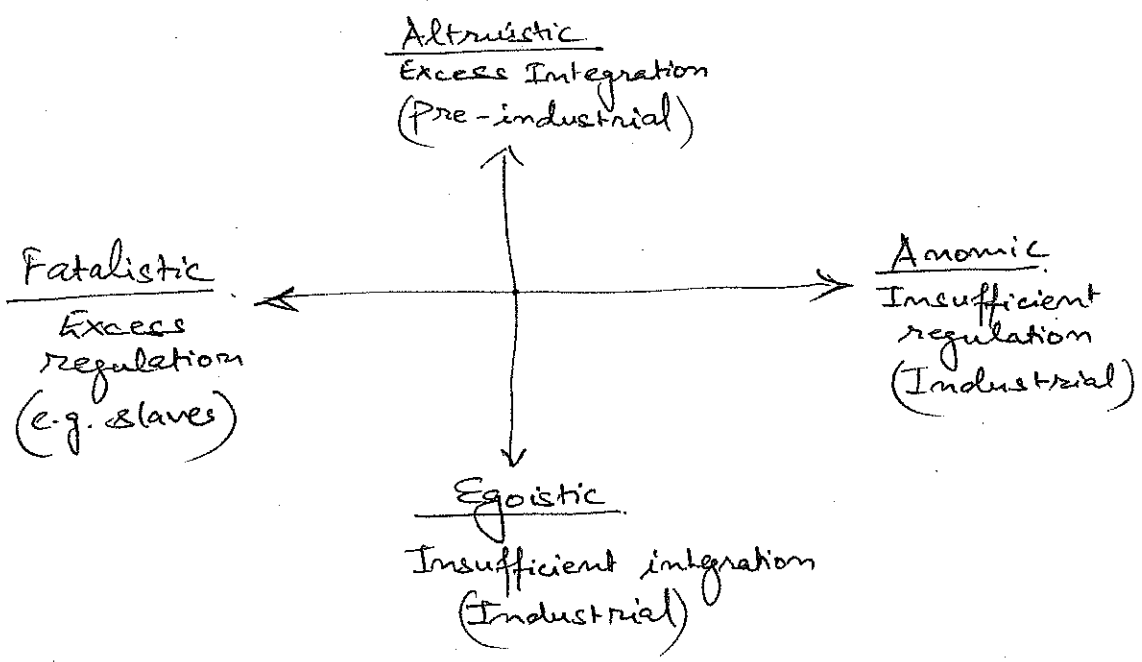 Altruistic
Excess Integration
(Pre-industrial)
Fatalistic
Excess
regulation
(e.g. slaves)
Anomic
Insufficient
regulation
(Industrial)
Egoistic
Insufficient integration
(Industrial)